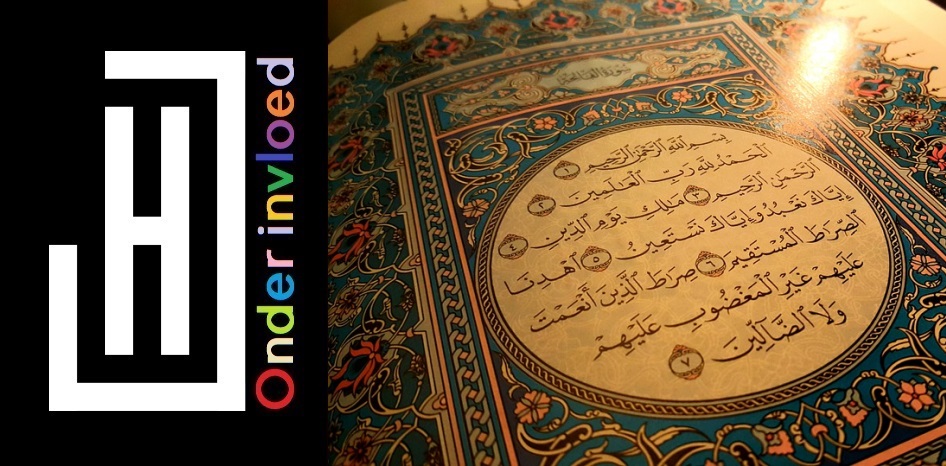 Onder invloed
سُورَةُ الْفَاتِحَةِ
بِسْمِ ٱللَّهِ ٱلرَّحْمَٰنِ ٱلرَّحِيمِ ١
ٱلْحَمْدُ لِلَّهِ رَبِّ ٱلْعَٰلَمِينَ ٢
ٱلرَّحْمَٰنِ ٱلرَّحِيمِ ٣ مَٰلِكِ يَوْمِ ٱلدِّينِ ٤
إِيَّاكَ نَعْبُدُ وَإِيَّاكَ نَسْتَعِينُ ٥ ٱهْدِنَا
ٱلصِّرَٰطَ ٱلْمُسْتَقِيمَ ٦ صِرَٰطَ ٱلَّذِينَ أَنْعَمْتَ
عَلَيْهِمْ غَيْرِ ٱلْمَغْضُوبِ عَلَيْهِمْ
وَلَا ٱلضَّآلِّينَ ٧